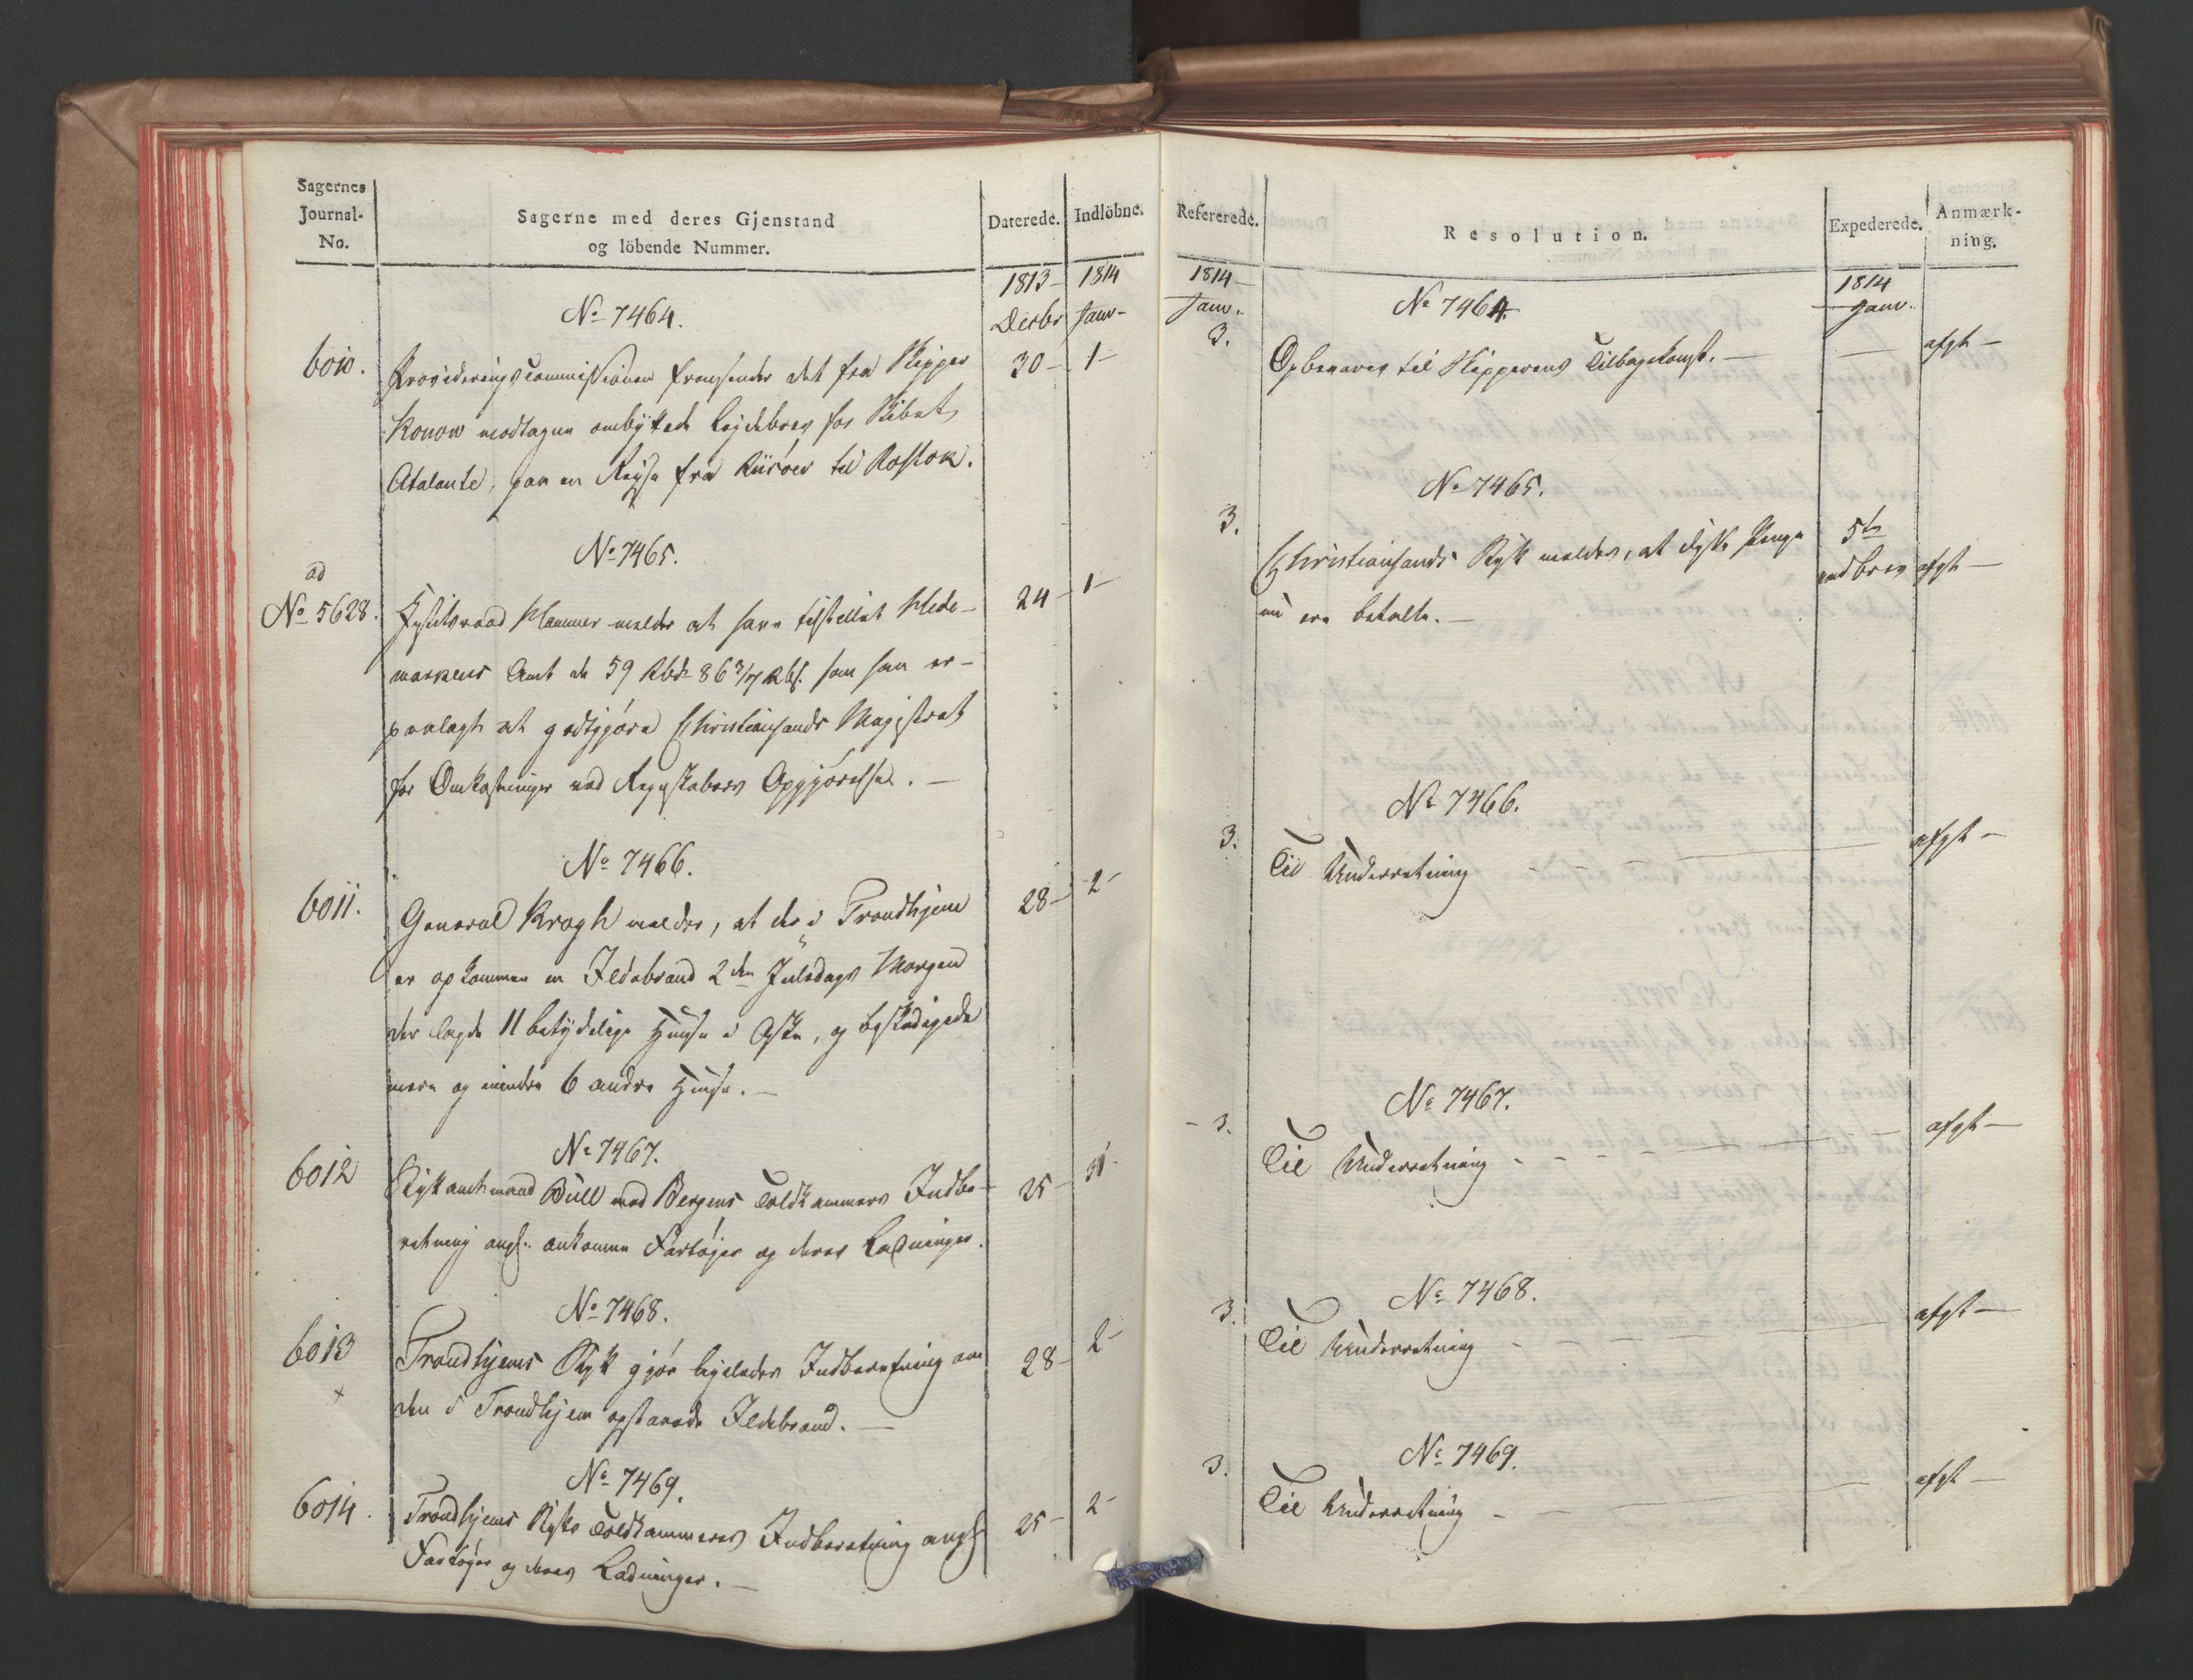 Sagernes
Journal-
No.
Sagerne med deres Gjenstand
og löbende Nummer.
Daterede.
Indlöbne.
1813 –
Decbr
1814
Janv –
No 7464.
6010.
Provideringscommissionen fremsender det fra Skipper
Konow modtagne ombyttede Lejdebrev for Skibet
Atalante, paa en Rejse fra Riisöer til Rostok.
30 –
1 –
No 7465.
ad
No 5628.
Justitsraad Hammer melder at have tilstillet Hede-
markens Amt de 59 Rbd. 86 3/7 Rbs. som han er
paalagt at godtgjöre Christiansands Magistrat
for Omkostninger ved Regnskabers Opgjörelse. –
24 –
1 –
No 7466.
6011.
General Krogh melder, at der i Trondhjem
er opkommen en Ildebrand 2den Juledags Morgen
der lagde 11 betydelige Huuse i Aske, og beskadigede
mere og mindre 6 andre Huuse. –
28 –
2 –
No 7467.
6012
Stiftamtmand Bull med Bergens Toldkammers Indbe-
retning angl. ankomne Fartöjer og deres Ladninger.
25 –
No 7468.
6013
+
Trondhjems Stift gjör ligeledes Indberetning om
den i Trondhjem opstaaede Ildebrand. –
28 –
2 –
No 7469.
6014.
Trondhjems Stifts Toldkammeres Indberetning angl
Fartöjer og deres Ladninger. –
25 –
2 –
Refererede.
Resolution.
Expederede.
Anmærk-
ning.
1814 –
Janv.
1814
Janv.
No 7464.
3.
Opbevares til Skipperens Tilbagekomst. –
afgk –
No 7465.
3.
Christiansands Stift meldes, at disse Penge
nu ere betalte. –
5te
afgk –
No 7466.
3.
Til Underretning
afgk –
No 7467.
– 3.
Til Underretning
afgk –
No 7468.
3.
Til Underretning
afgk –
No 7469.
3.
Til Underretning
afgk –